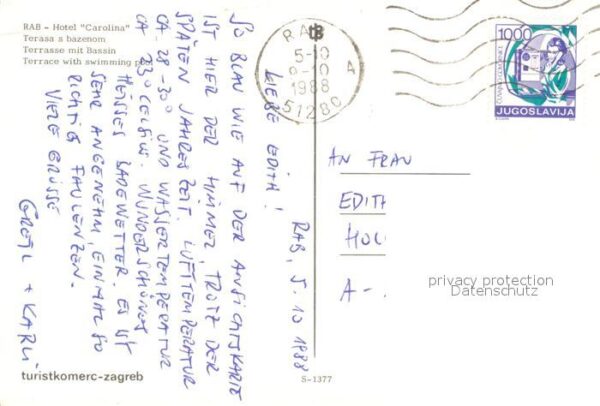 RAB - Hotel "Carolina"
Terasa s bazenom
Terrasse mit Bassin
Terrace with swimming p
RAB
5-10
1988
A
51280
1000
JUGOSLAVIJA
RAB, 5. 10 1988
LIEBE EDITH!
SO BLAU WIE AUF DER ANSICHTSKARTE
IST HIER DER HIMMEL, TROTZ DER
SPÄTEN JAHRESZEIT. LUFTTEMPERATUR
CA 28-30° UND WASSERTEMPERATUR
CA 23° CELSIUS. WUNDERSCHÖNES
HEISSES BADEWETTER. ES IST
SEHR ANGENEHM, EINMAL SO
RICHTIG FAULENZEN.
VIELE GRÜSSE
GRETL + KARLI
AN FRAU
EDITH
HOL
A-
privacy protection
Datenschutz
turistkomerc-zagreb
S-1377